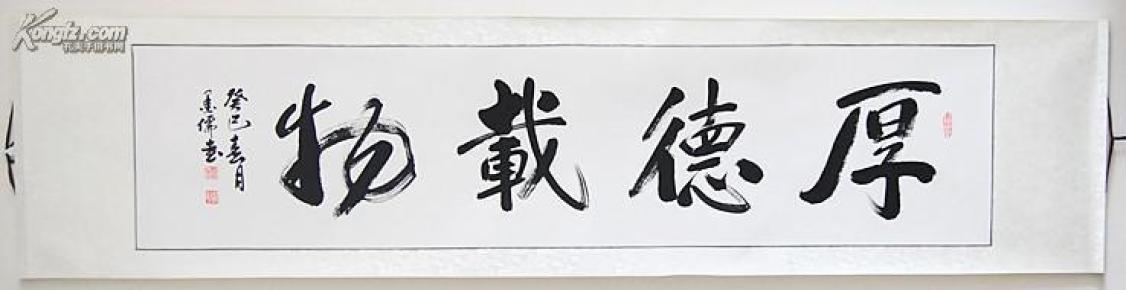 厚德載物
癸巳春月
墨儒书
Kongfz.com
孔夫子旧书网